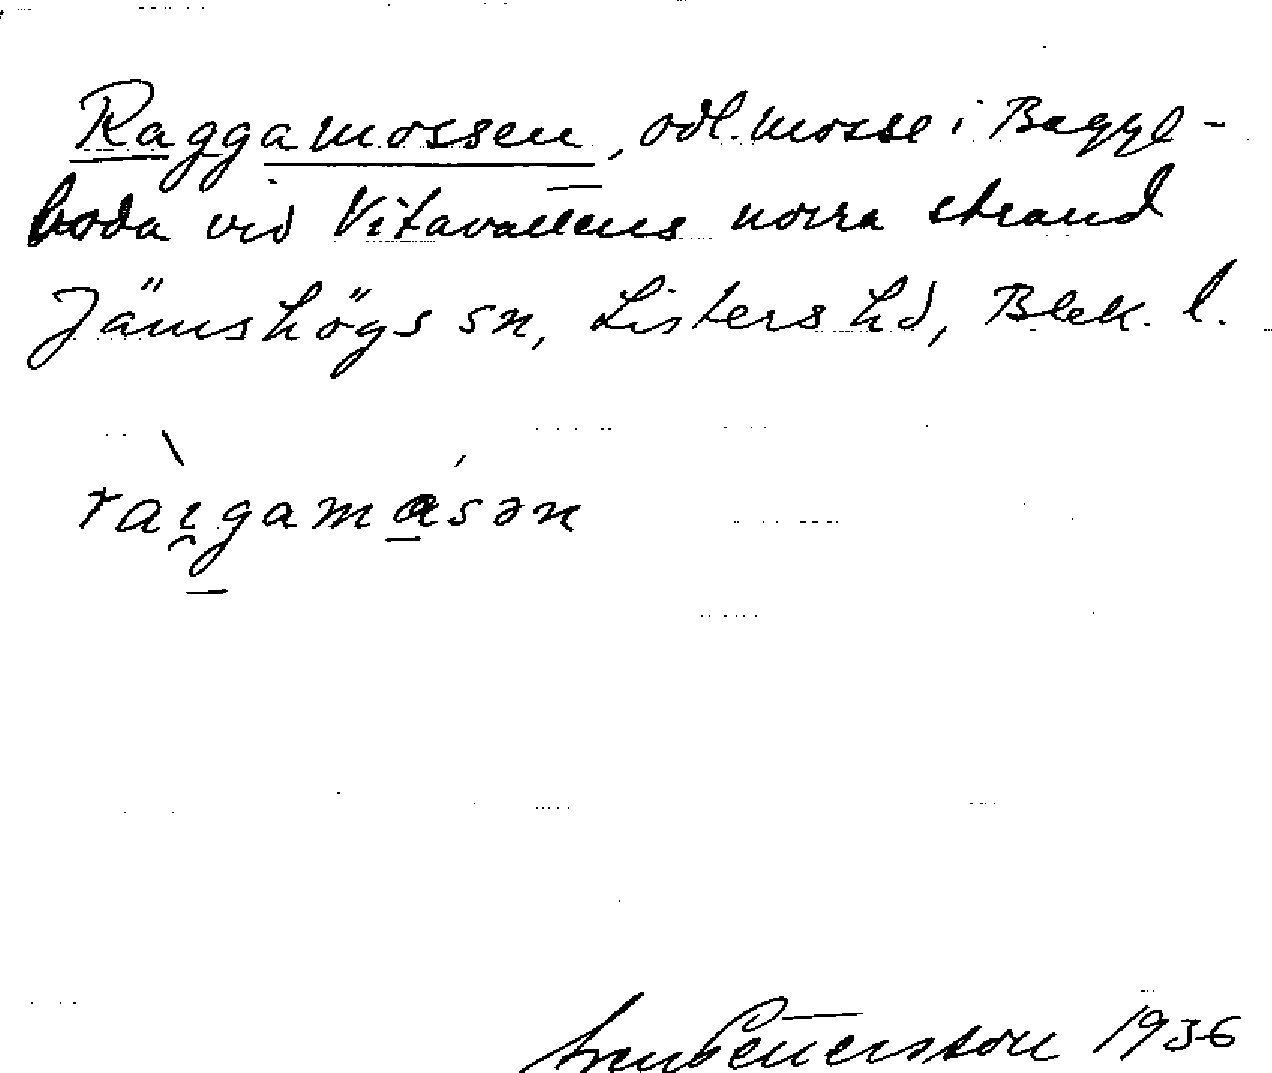 Raggamossen, odl. mosse i Baggeboda
boda vid Vitavattens norra strand
Jämshögs sn, Listers hd, Blek. l.
raı̯gamɑsən
1936